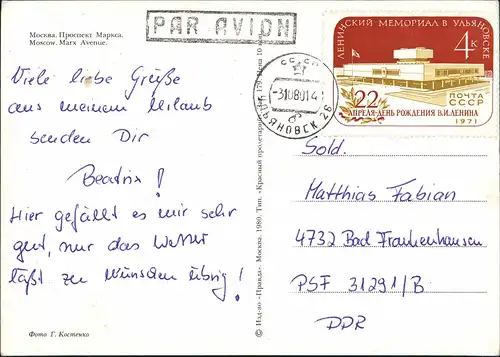 Москва. Проспект Маркса.
Moscow. Marx Avenue.
PAR AVION
Viele liebe Grüße
aus meinem Urlaub
senden Dir
Beatrix!
Hier gefällt es mir sehr
gut, nur das Wetter
läßt zu Wünschen übrig!
Фото Г. Костенко
© Изд-во «Правда». Москва. 1980. Тип. «Красный пролетарий». 179. Цена 10 коп.
СССР
-31080 14
УЛЬЯНОВСК 26
ЛЕНИНСКИЙ МЕМОРИАЛ В УЛЬЯНОВСКЕ
4К
22
АПРЕЛЯ-ДЕНЬ РОЖДЕНИЯ В.И.ЛЕНИНА
ПОЧТА
СССР
1971
Sold.
Matthias Fabian
4732 Bad Frankenhausen
PSF 31291/B
DDR